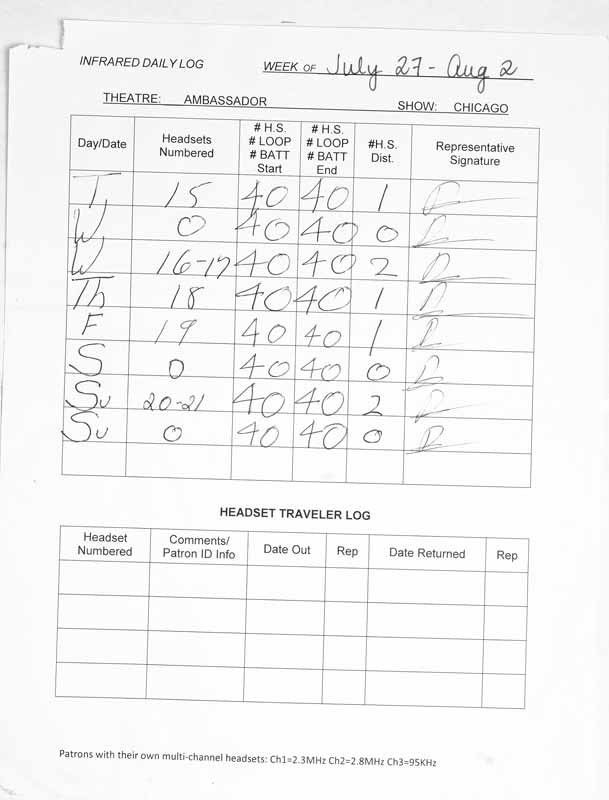 INFRARED DAILY LOG WEEK OF July 27 - Aug 2
THEATRE: AMBASSADOR SHOW: CHICAGO
Day/Date Headsets Numbered # H.S. # LOOP # BATT Start # H.S. # LOOP # BATT End #H.S. Dist. Representative Signature
T, 15 40 40 1
W, 0 40 40 0
W 16-17 40 40 2
Th 18 40 40 1
F 19 40 40 1
S 0 40 40 0
Su 20-21 40 40 2
Su 0 40 40 0
HEADSET TRAVELER LOG
Headset Numbered Comments/ Patron ID Info Date Out Rep Date Returned Rep
Patrons with their own multi-channel headsets: Ch1=2.3MHz Ch2=2.8MHz Ch3=95KHz